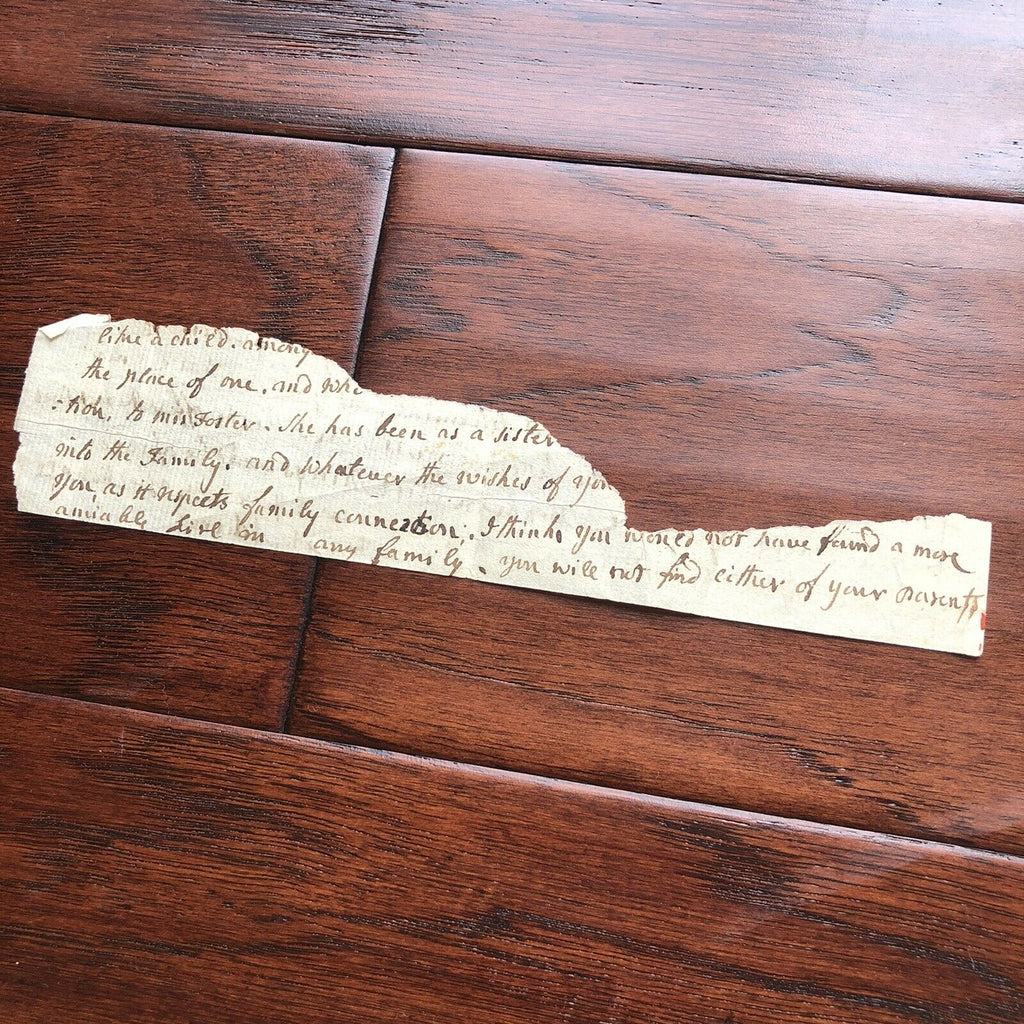 like a child. among
the place of one. and whe
:tion, to miss Foster. She has been as a sister
into the Family. and whatever the wishes of you
you, as it respects family connection,. I think you would not have found a more
amiable Girl in any family. you will not find either of your parents